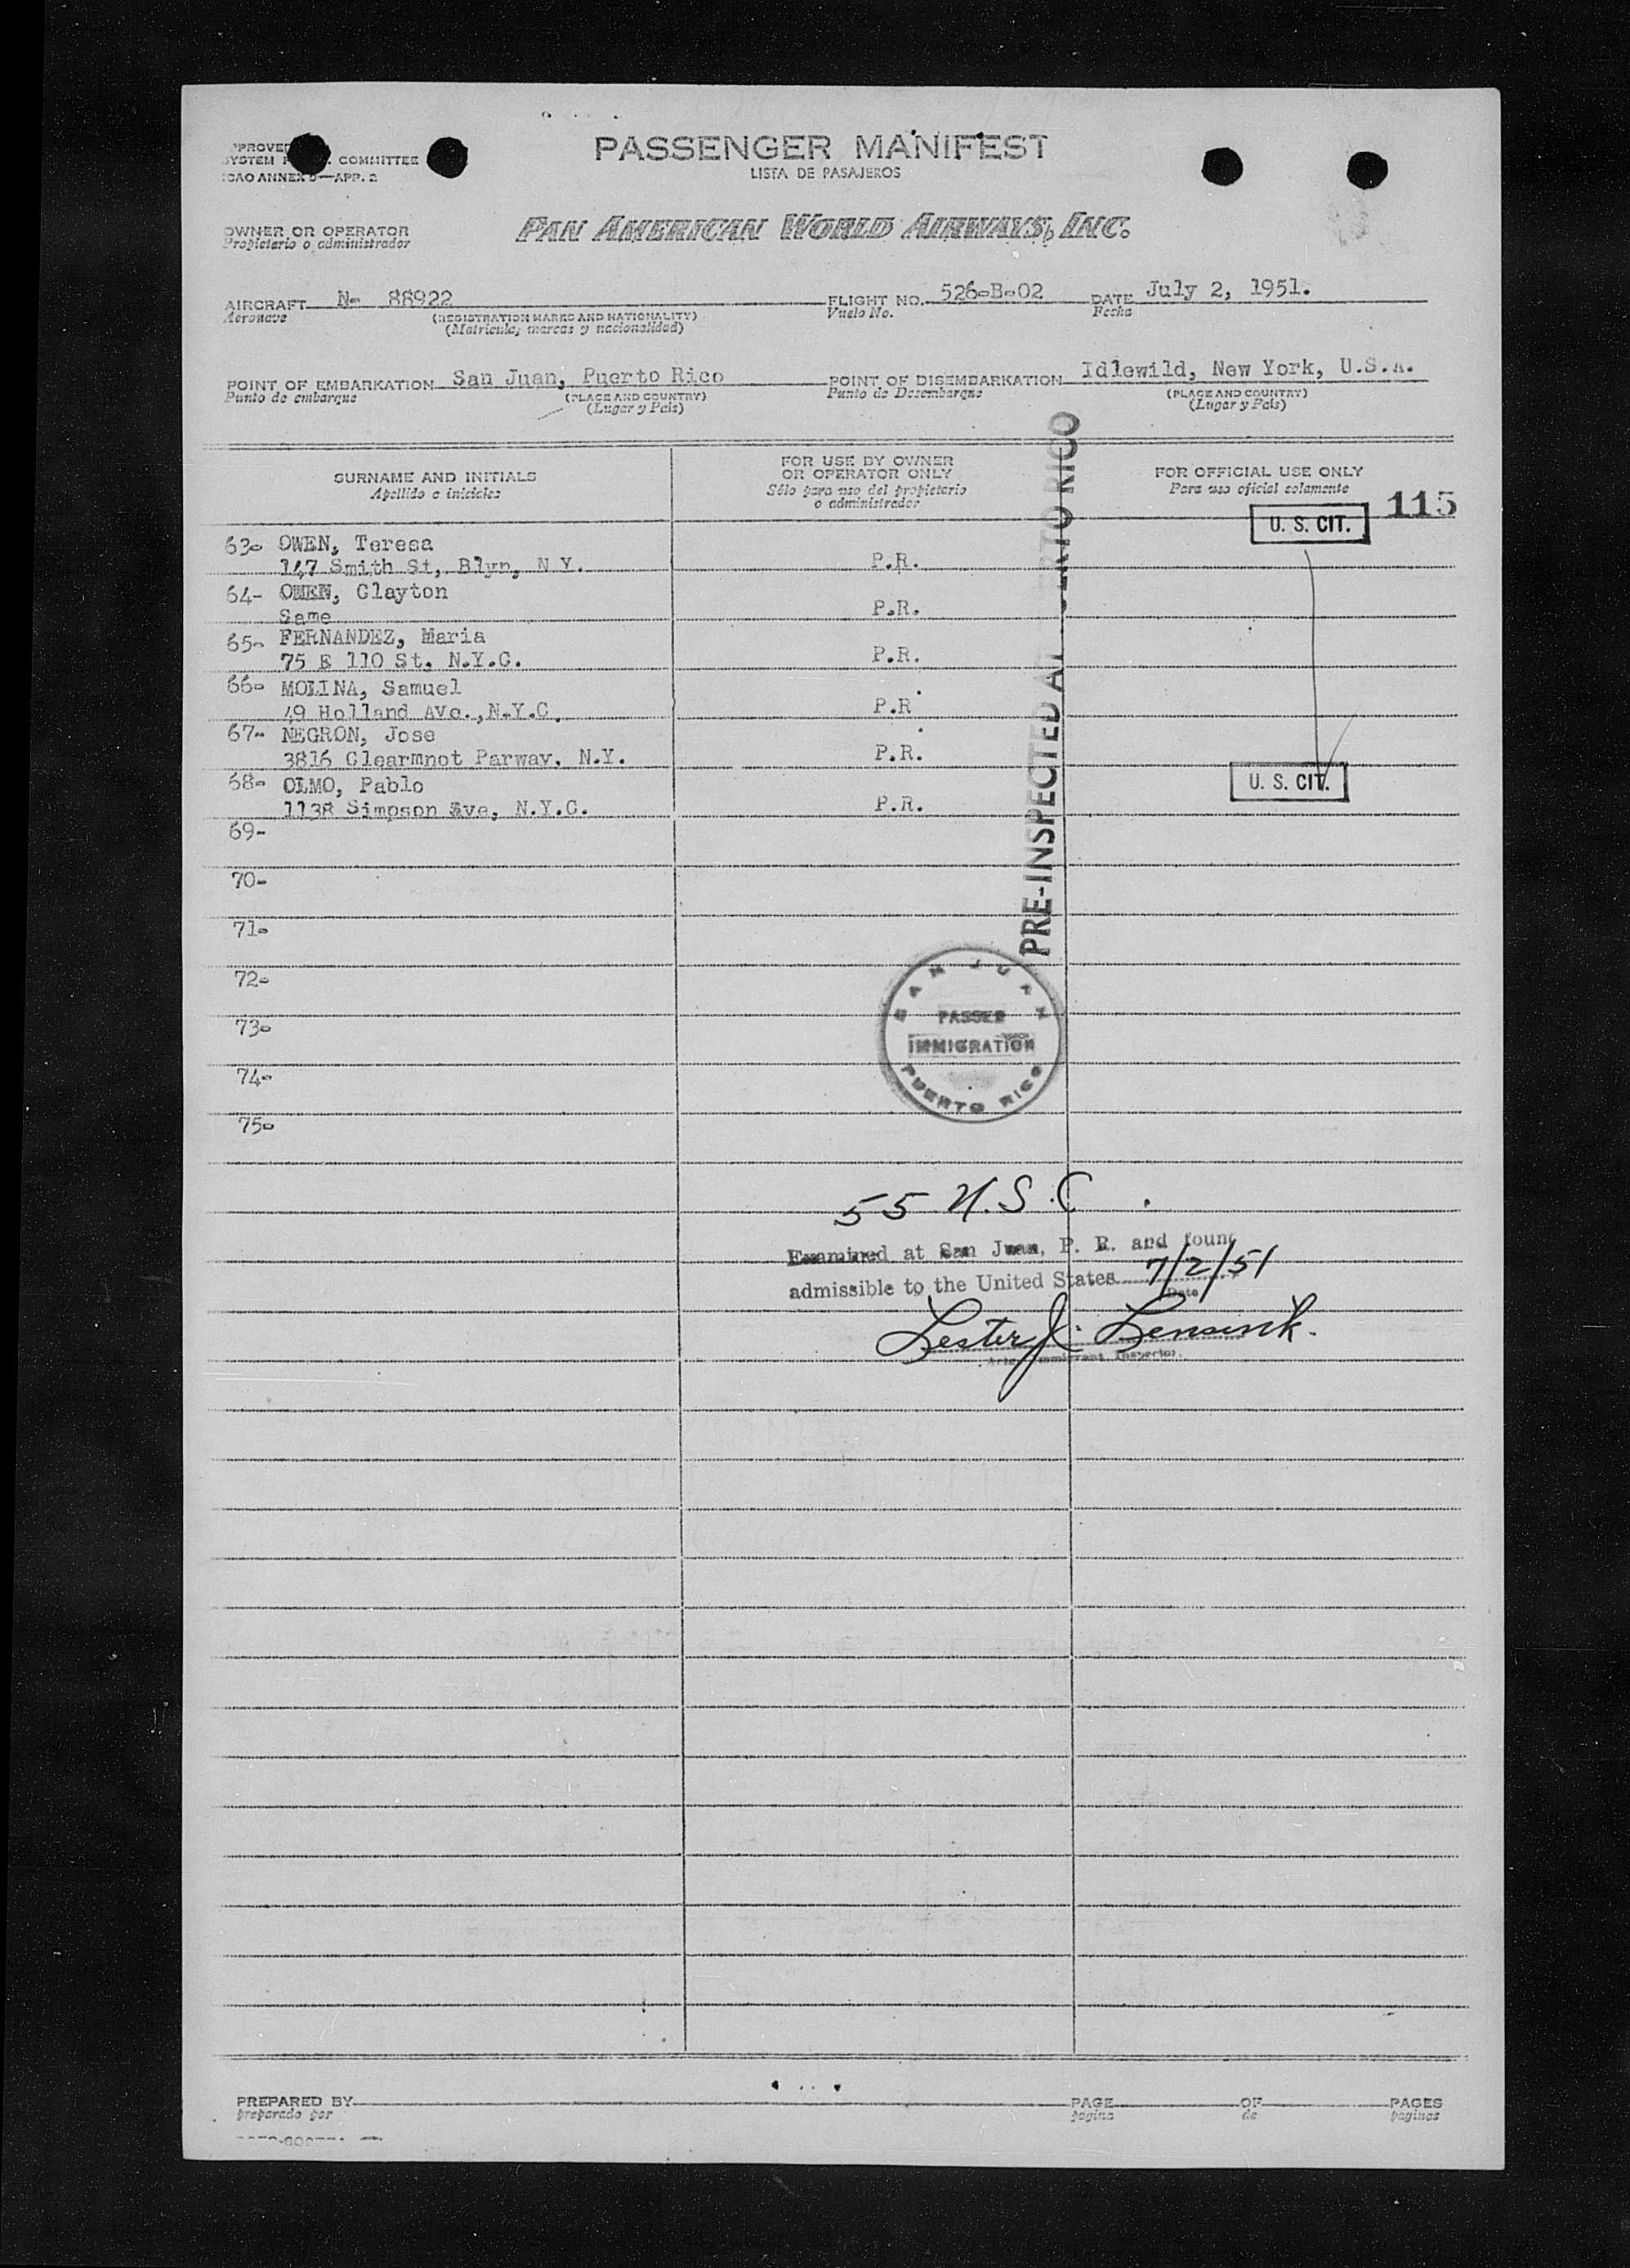 PASSENGER MANIFEST
LISTA DE PASAJEROS
SYSTEM COMMITTEE
ICAO ANNEX 9—APP. 2
OWNER OR OPERATOR
Propietario o administrador
PAN AMERICAN WORLD AIRWAYS, INC.
AIRCRAFT N- 88922
Aeronave
(REGISTRATION MARKS AND NATIONALITY)
(Matricula, marcas y nacionalidad)
FLIGHT NO. 526-B-02
Vuelo No.
DATE July 2, 1951.
Fecha
POINT OF EMBARKATION San Juan, Puerto Rico
Punto de embarque
(PLACE AND COUNTRY)
(Lugar y País)
POINT OF DISEMBARKATION Idlewild, New York, U.S.A.
Punto de Desembarque
(PLACE AND COUNTRY)
(Lugar y País)
SURNAME AND INITIALS
Apellido e iniciales
FOR USE BY OWNER
OR OPERATOR ONLY
Sólo para uso del propietario
o administrador
FOR OFFICIAL USE ONLY
Para uso oficial solamente
115
U. S. CIT.
63- OWEN, Teresa
147 Smith St, Blyn, N Y. P.R.
64- OWEN, Clayton
Same P.R.
65- FERNANDEZ, Maria
75 E 110 St. N.Y.C. P.R.
66- MOLINA, Samuel
49 Holland Ave., N.Y.C. P.R
67- NEGRON, Jose
3816 Clearmnot Parway, N.Y. P.R.
68- OLMO, Pablo
1138 Simpson Ave, N.Y.C. P.R.
U. S. CIT.
69-
70-
71-
72-
73-
74-
75-
PRE-INSPECTED AT PUERTO RICO
SAN JUAN
PASSED
IMMIGRATION
PUERTO RICO
55 U.S.C.
Examined at San Juan, P. R. and found
admissible to the United States 7/2/51
Date
Lester J. Lensink.
Immigrant Inspector.
PREPARED BY
preparado por
PAGE OF PAGES
pagina de paginas